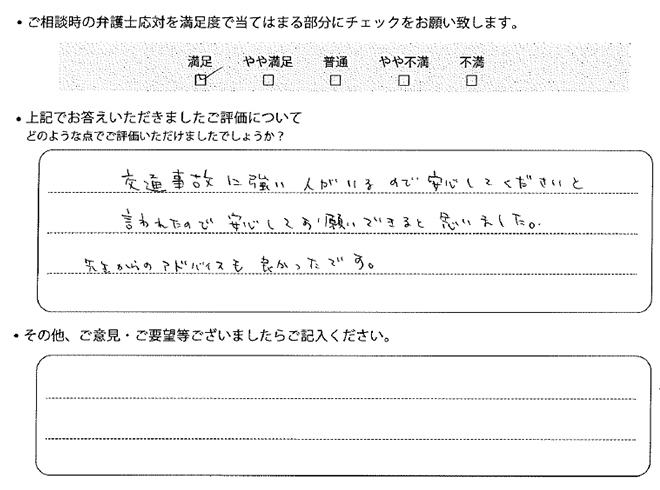 • ご相談時の弁護士応対を満足度で当てはまる部分にチェックをお願い致します。
満足 やや満足 普通 やや不満 不満
• 上記でお答えいただきましたご評価について
どのような点でご評価いただけましたでしょうか?
交通事故に強い人がいるので安心してくださいと
言われたので安心してお願いできると思いました。
先生からのアドバイスも良かったです。
• その他、ご意見・ご要望等ございましたらご記入ください。